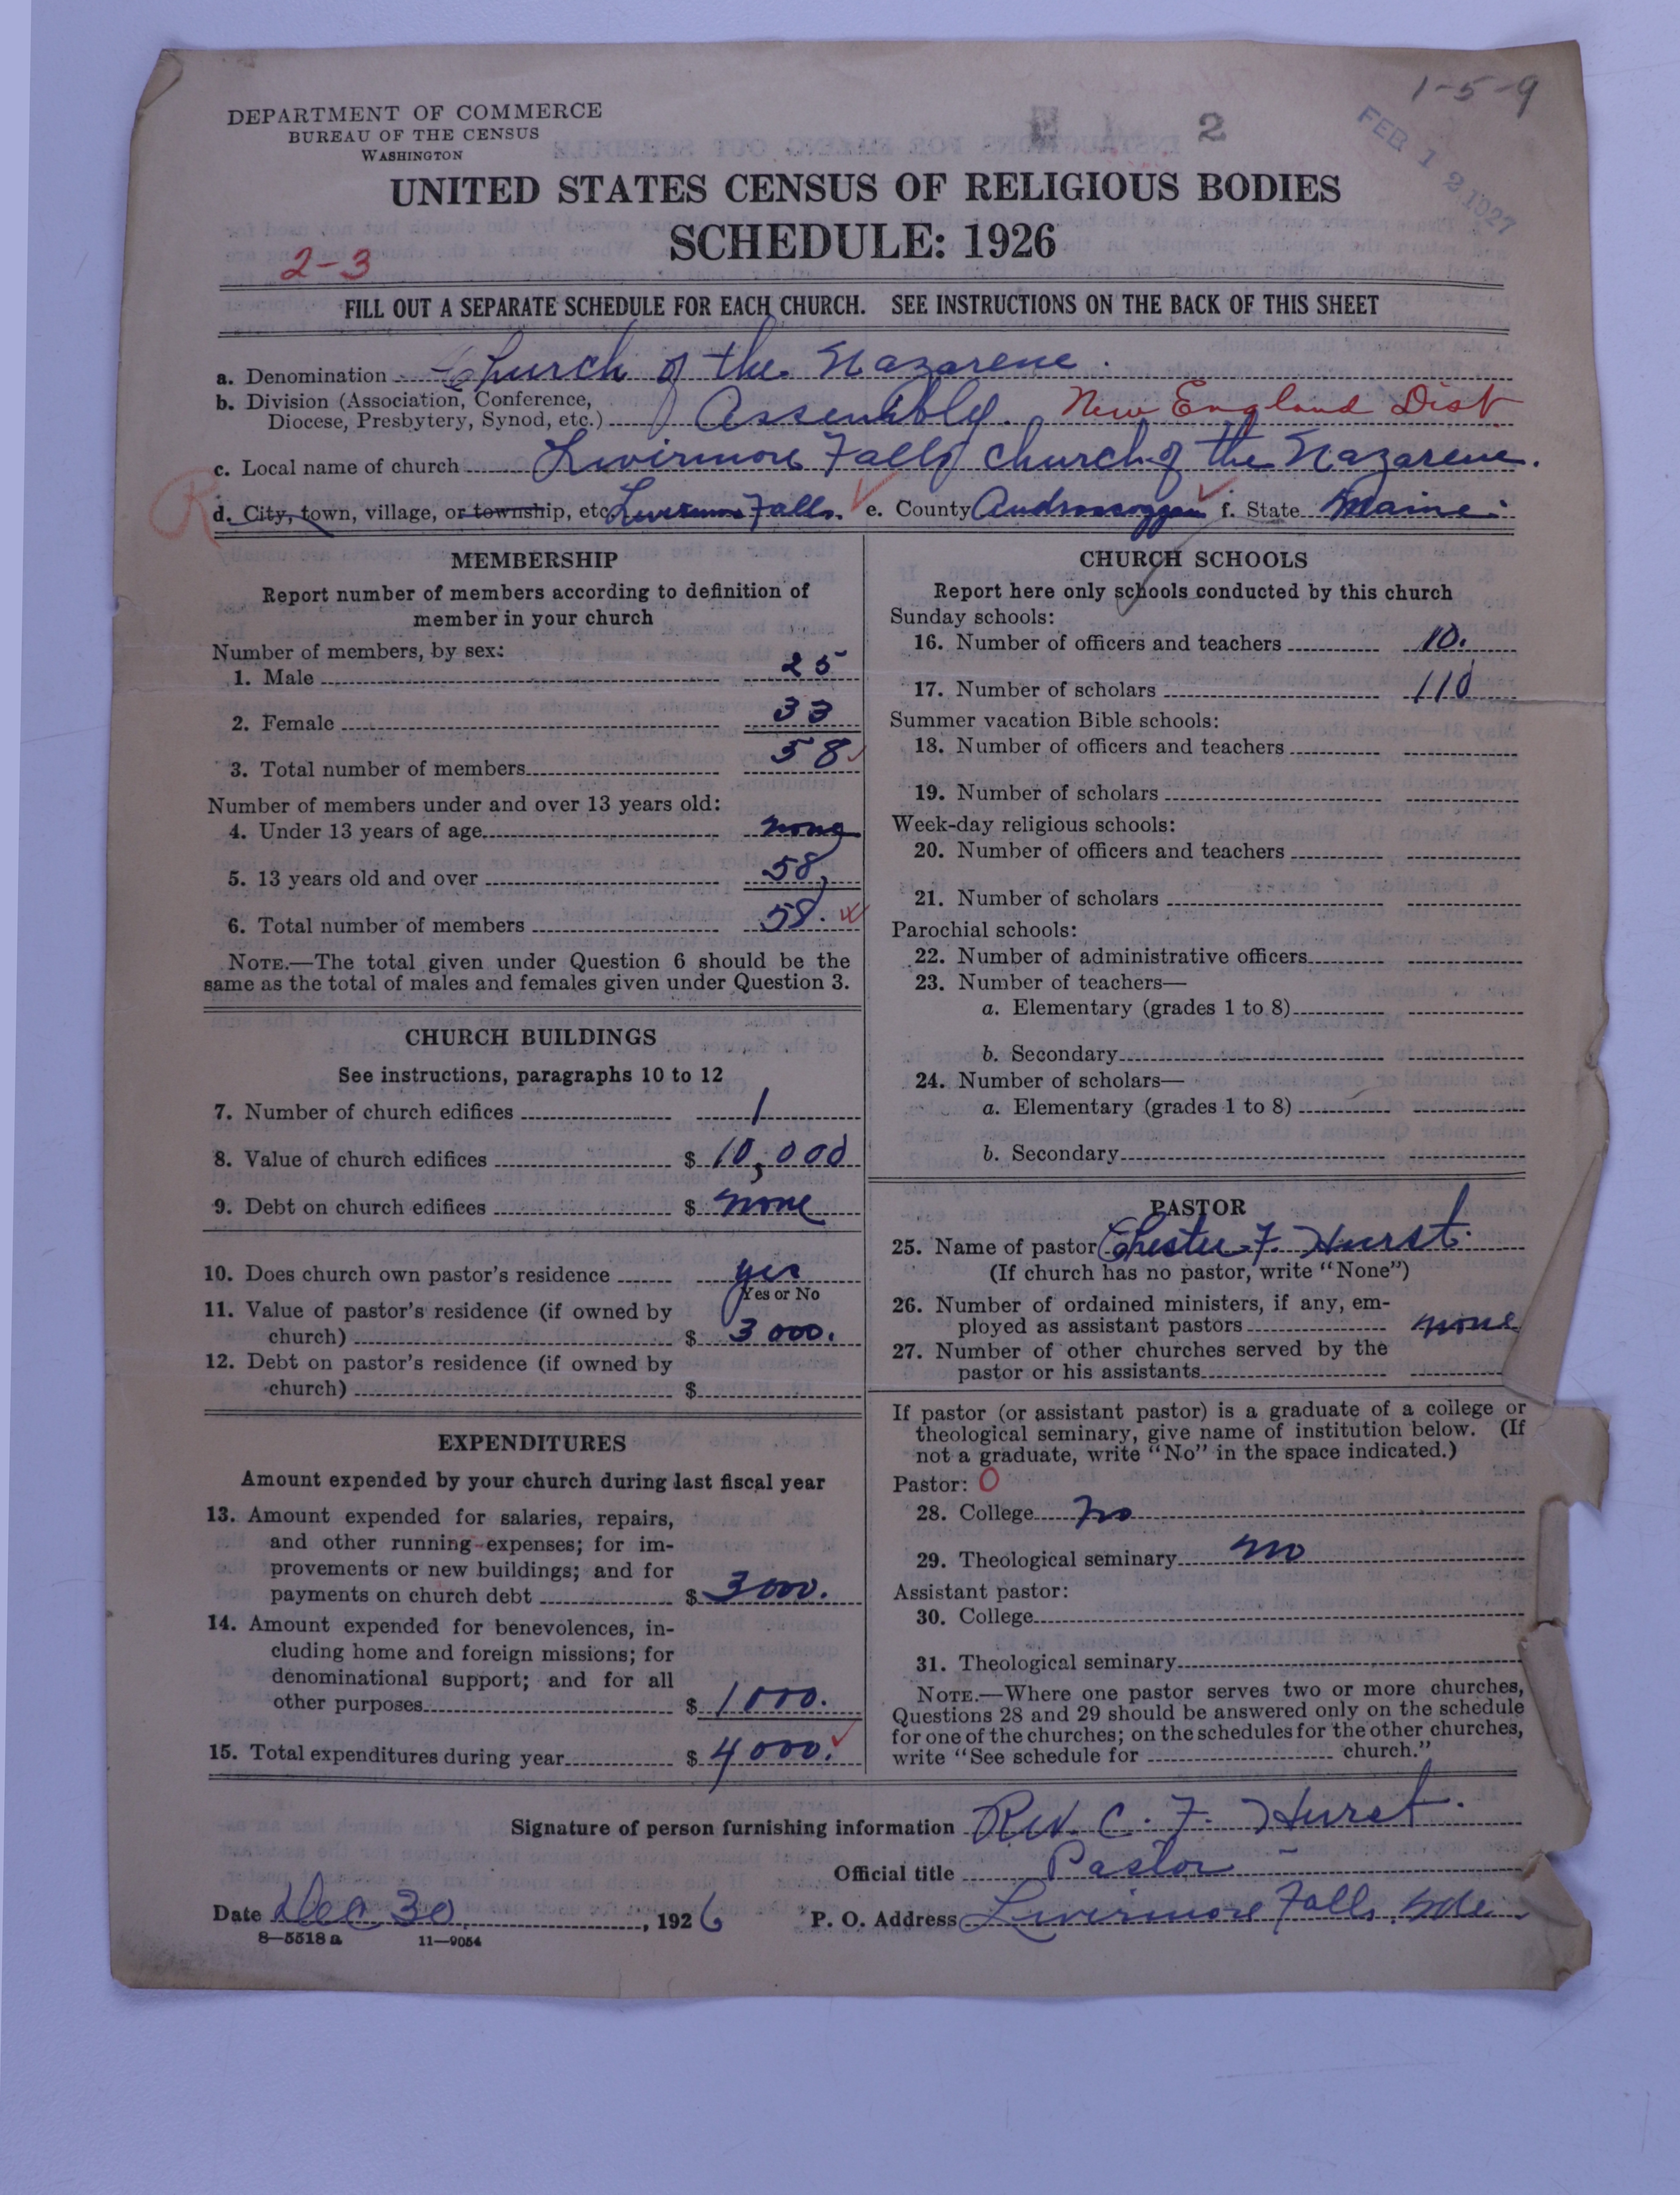 1-5-9
DEPARTMENT OF COMMERCE
BUREAU OF THE CENSUS
WASHINGTON
2
FEB 12 1927
UNITED STATES CENSUS OF RELIGIOUS BODIES
SCHEDULE: 1926
2-3
FILL OUT A SEPARATE SCHEDULE FOR EACH CHURCH. SEE INSTRUCTIONS ON THE BACK OF THIS SHEET
a. Denomination Church of the Nazarene.
b. Division (Association, Conference,
Diocese, Presbytery, Synod, etc.) Assembly. New England Dist
c. Local name of church Livirmore Falls church of the Nazarene.
R
d. City, town, village, or township, etc. Livermore Falls. e. County Androscoggin f. State Maine.
MEMBERSHIP
Report number of members according to definition of
member in your church
Number of members, by sex:
1. Male 25
2. Female 33
3. Total number of members 58
Number of members under and over 13 years old:
4. Under 13 years of age none
5. 13 years old and over 58
6. Total number of members 58.
NOTE.—The total given under Question 6 should be the
same as the total of males and females given under Question 3.
CHURCH BUILDINGS
See instructions, paragraphs 10 to 12
7. Number of church edifices 1
8. Value of church edifices $ 10,000
9. Debt on church edifices $ none
10. Does church own pastor's residence yes
Yes or No
11. Value of pastor's residence (if owned by
church) $ 3000.
12. Debt on pastor's residence (if owned by
church) $
EXPENDITURES
Amount expended by your church during last fiscal year
13. Amount expended for salaries, repairs,
and other running expenses; for im-
provements or new buildings; and for
payments on church debt $ 3000.
14. Amount expended for benevolences, in-
cluding home and foreign missions; for
denominational support; and for all
other purposes $ 1000.
15. Total expenditures during year $ 4000.
CHURCH SCHOOLS
Report here only schools conducted by this church
Sunday schools:
16. Number of officers and teachers 10.
17. Number of scholars 110
Summer vacation Bible schools:
18. Number of officers and teachers
19. Number of scholars
Week-day religious schools:
20. Number of officers and teachers
21. Number of scholars
Parochial schools:
22. Number of administrative officers
23. Number of teachers—
a. Elementary (grades 1 to 8)
b. Secondary
24. Number of scholars—
a. Elementary (grades 1 to 8)
b. Secondary
PASTOR
25. Name of pastor Chester F. Hurst.
(If church has no pastor, write "None")
26. Number of ordained ministers, if any, em-
ployed as assistant pastors none
27. Number of other churches served by the
pastor or his assistants
If pastor (or assistant pastor) is a graduate of a college or
theological seminary, give name of institution below. (If
not a graduate, write "No" in the space indicated.)
Pastor: 0
28. College No
29. Theological seminary no
Assistant pastor:
30. College
31. Theological seminary
NOTE.—Where one pastor serves two or more churches,
Questions 28 and 29 should be answered only on the schedule
for one of the churches; on the schedules for the other churches,
write "See schedule for church."
Signature of person furnishing information Rev. C. F. Hurst.
Official title Pastor
Date Dec 30, 1926 P. O. Address Livirmore Falls, Me
8—5518 a 11—9054